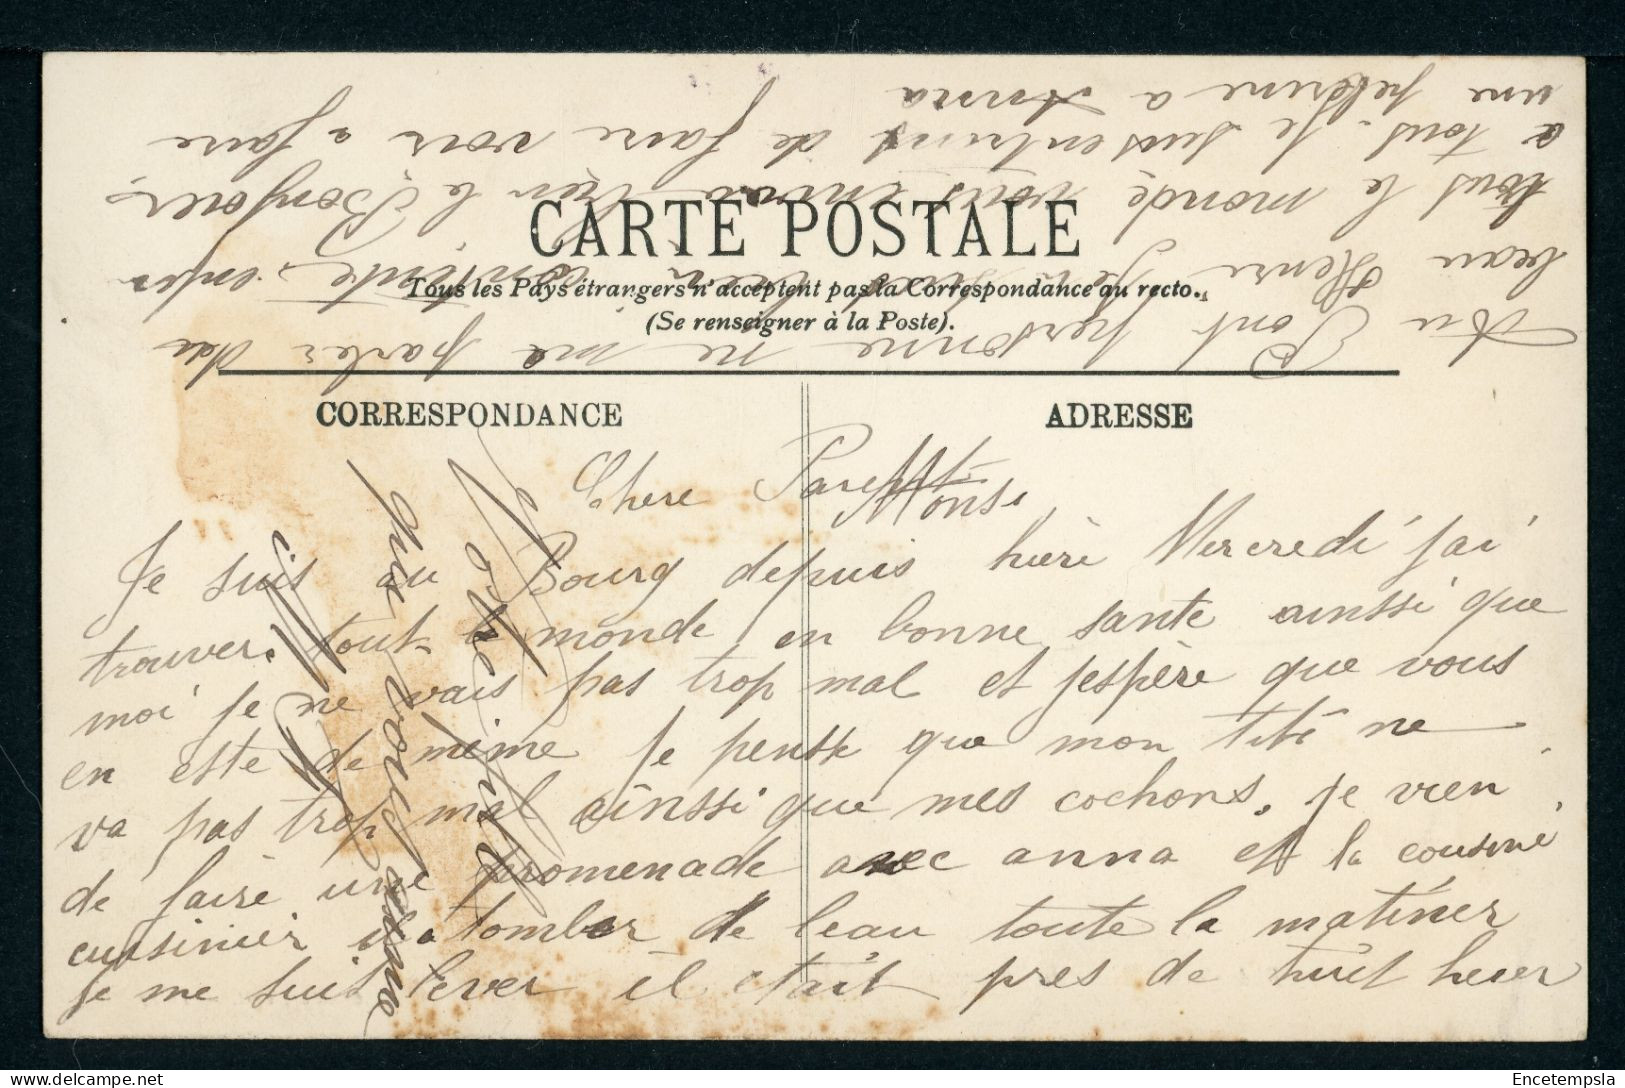 CARTE POSTALE
Tous les Pays étrangers n'acceptent pas la Correspondance au recto.
(Se renseigner à la Poste).
CORRESPONDANCE
ADRESSE
Chere Parent
Mons
Je suis au Bourg depuis hièrè Mercredi j'ai
trouver tout le monde en bonne sante ainssi que
moi je ne vais pas trop mal et j'espère que vous
en este de même je pensse que mon titi ne
va pas trop mal ainssi que mes cochons. je vien
de fairè une promenade avec anna et la cousinè
cuisinièr il a tomber de leau toute la matiner
je me suit lever il etait près de huit heuer
Au Pont personne ne ma parler du
beau Henri je suis bien contente. enfin
tous le monde vous envoie bien le Bonjoure
a tous. Je suis entrint de faire voir a faire
une pelerine a Anna
Votre fille
qui vous aime